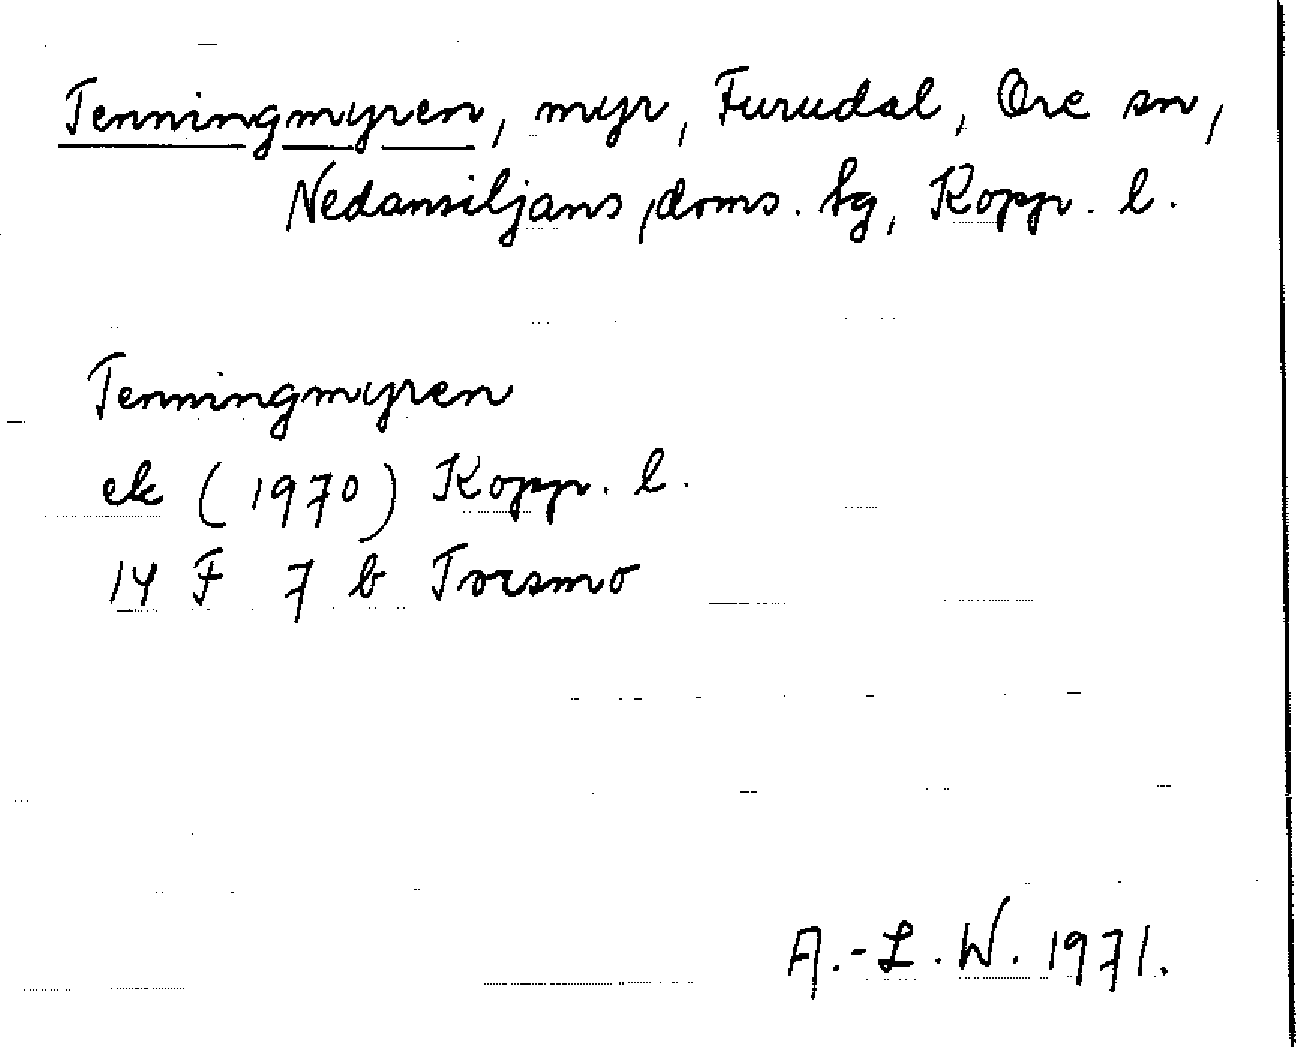 Tenningmyren, myr, Furudal, Ore sn,
Nedansiljans doms. tg, Kopp. l.
Tenningmyren
ek (1970) Kopp. l.
14 F 7 b Torsmo
A.-L. W. 1971.